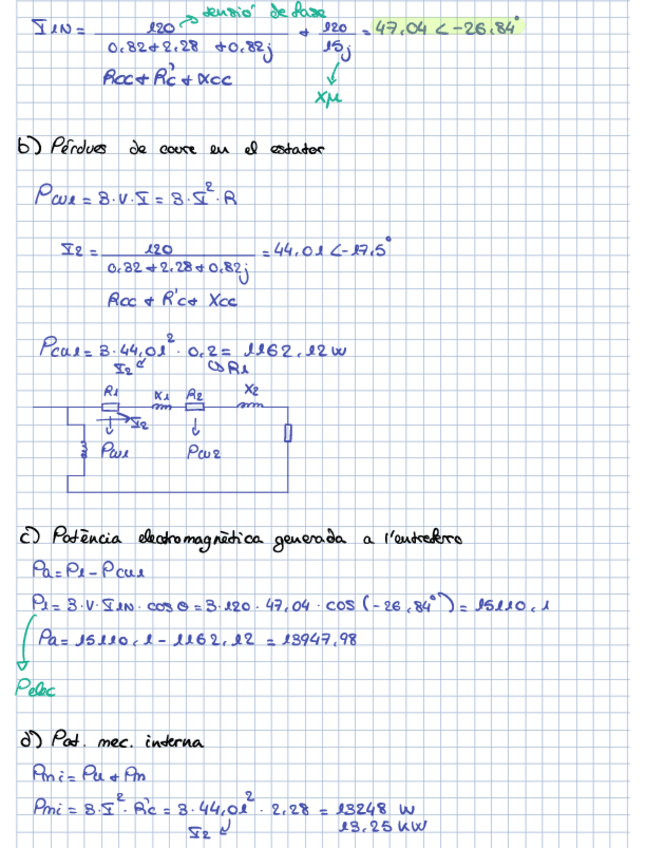 tensió de fase
I1N = 120 / (0,32+2,28+0,82j) + 120 / 15j = 47,04 <-26,84°
Rcc + R'c + Xcc
Xμ
b) Pérdues de coure en el estator
Pcu1 = 3·V·I = 3·I²·R
I2 = 120 / (0,32+2,28+0,82j) = 44,01 <-17,5°
Rcc + R'c + Xcc
Pcu1 = 3·44,01²·0,2 = 1162,12 W
I2 R1
R1 X1 R2 X2
I2
Pcu1 Pcu2
c) Potència electromagnètica generada a l'entreferro
Pa = P1 - Pcu1
P1 = 3·V·I1N·cos θ = 3·120·47,04·cos(-26,84°) = 15110,1
Pa = 15110,1 - 1162,12 = 13947,98
Pelec
d) Pot. mec. interna
Pmi = Pu + Pm
Pmi = 3·I²·R'c = 3·44,01²·2,28 = 13248 W
I2 13,25 KW